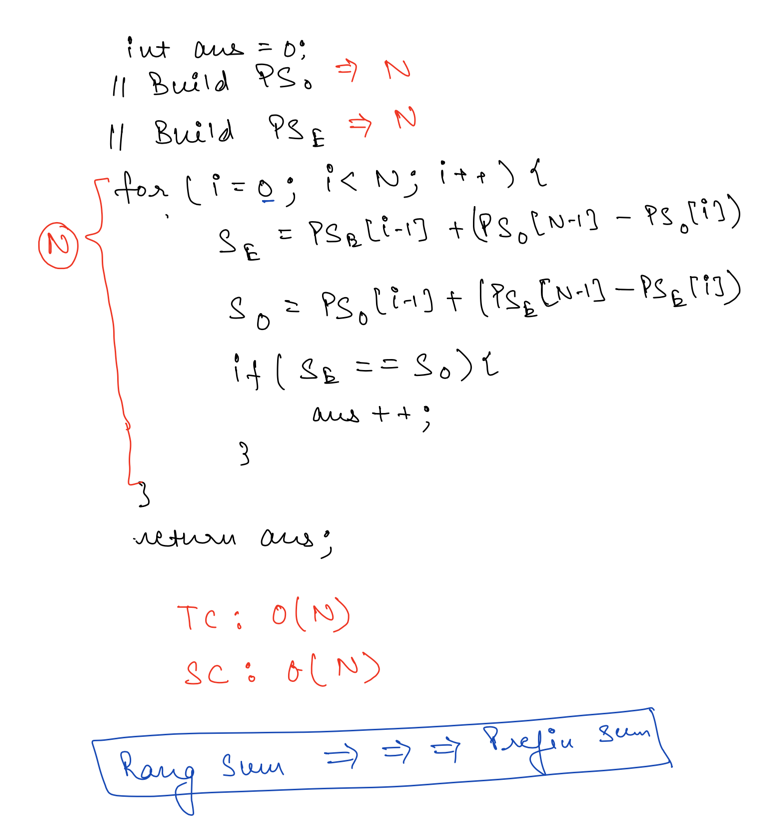 int ans = 0;
// Build PS₀ ⇒ N
// Build PS_E ⇒ N
for (i = 0; i < N; i++) {
S_E = PS_E[i-1] + (PS₀[N-1] - PS₀[i])
N
S₀ = PS₀[i-1] + (PS_E[N-1] - PS_E[i])
if (S_E == S₀) {
ans ++;
}
}
return ans;
TC : O(N)
SC : O(N)
Rang Sum ⇒ ⇒ ⇒ Prefix Sum